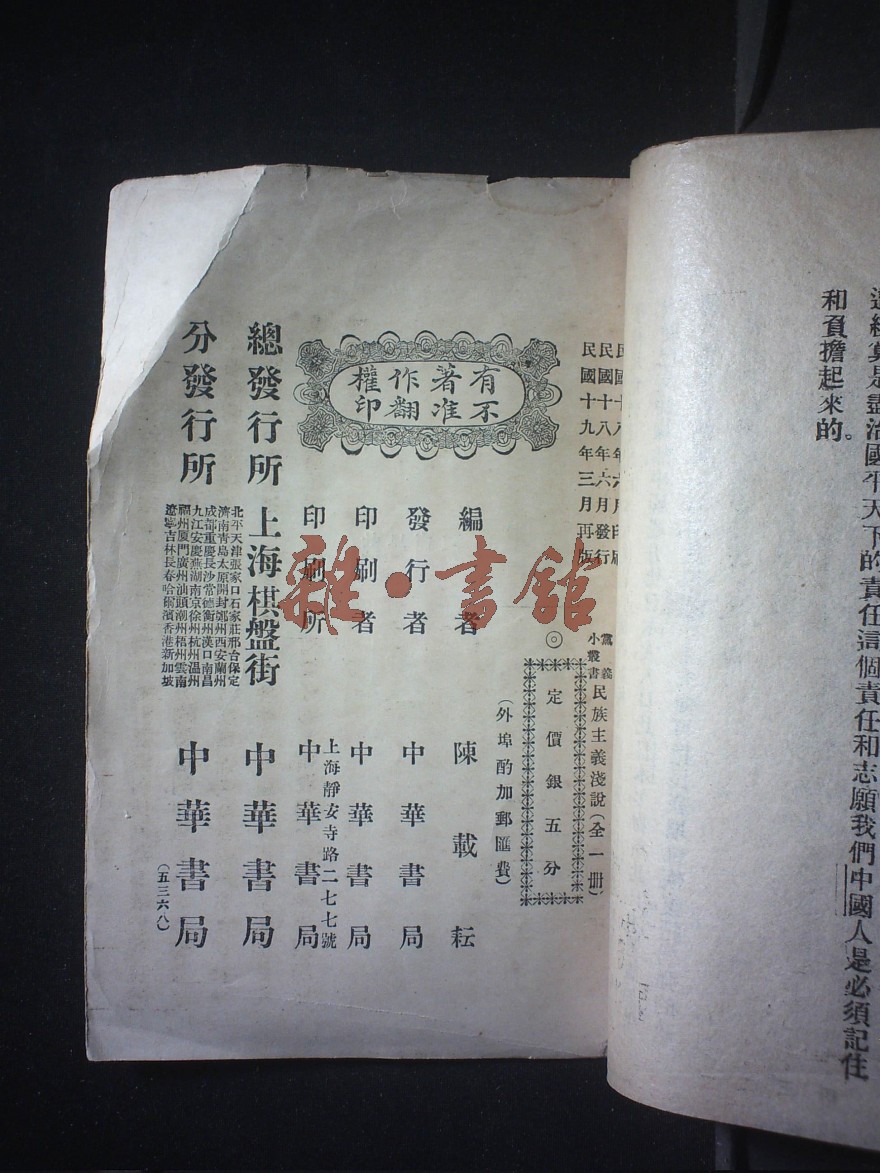 還總算是盡治國平天下的責任這個責任和志願我們中國人是必須記住
和負擔起來的。
民國十八年六月印刷
民國十八年六月發行
民國十九年三月再版
黨義小叢書 民族主義淺說(全一冊)
◎
定價銀五分
(外埠酌加郵匯費)
有著作權
不准翻印
編者 陳載耘
發行者 中華書局
印刷者 中華書局
印刷所 上海靜安寺路二七七號 中華書局
總發行所 上海棋盤街 中華書局
分發行所
北平天津張家口石家莊邢台保定
濟南青島太原開封鄭州西安蘭州
成都重慶長沙常德衡州漢口南昌
九江安慶蕪湖南京徐州杭州溫州
福州廈門廣州汕頭潮州梧州雲南
遼寧吉林長春哈爾濱香港新加坡
中華書局
(五三六八)
雜·書館